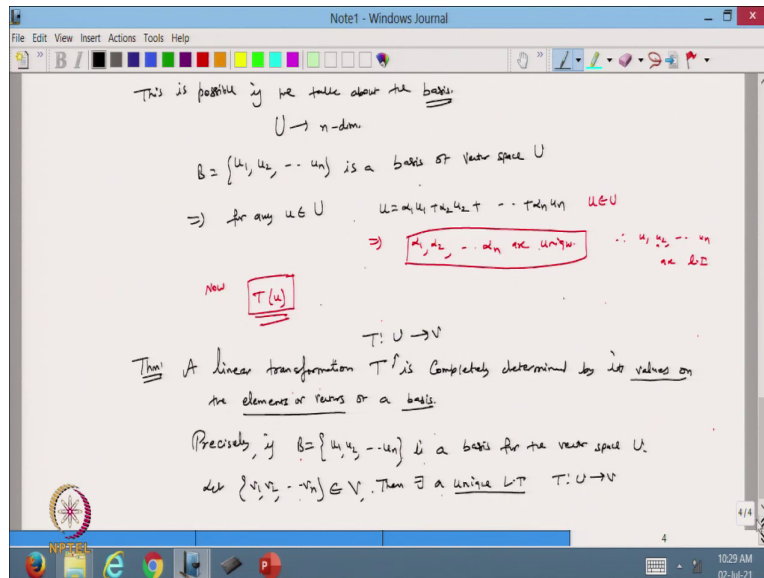 Note1 - Windows Journal
File Edit View Insert Actions Tools Help
This is possible if we talk about the basis.
U → n-dim.
B = {u1, u2, -- un} is a basis of vector space U
=) for any u ∈ U u = α1u1 + α2u2 + -- + αnun u ∈ U
=) α1, α2, -- αn are unique. ∴ u1, u2, -- un
are L.I
Now T(u)
T: U → V
Thm: A linear transformation T is completely determined by its values on
the elements or vectors of a basis.
Precisely, if B = {u1, u2, -- un} is a basis for the vector space U.
Let {v1, v2, -- vn} ∈ V. Then ∃ a unique L.T T: U → V
4/4
4
NPTEL
10:29 AM
02-Jul-21